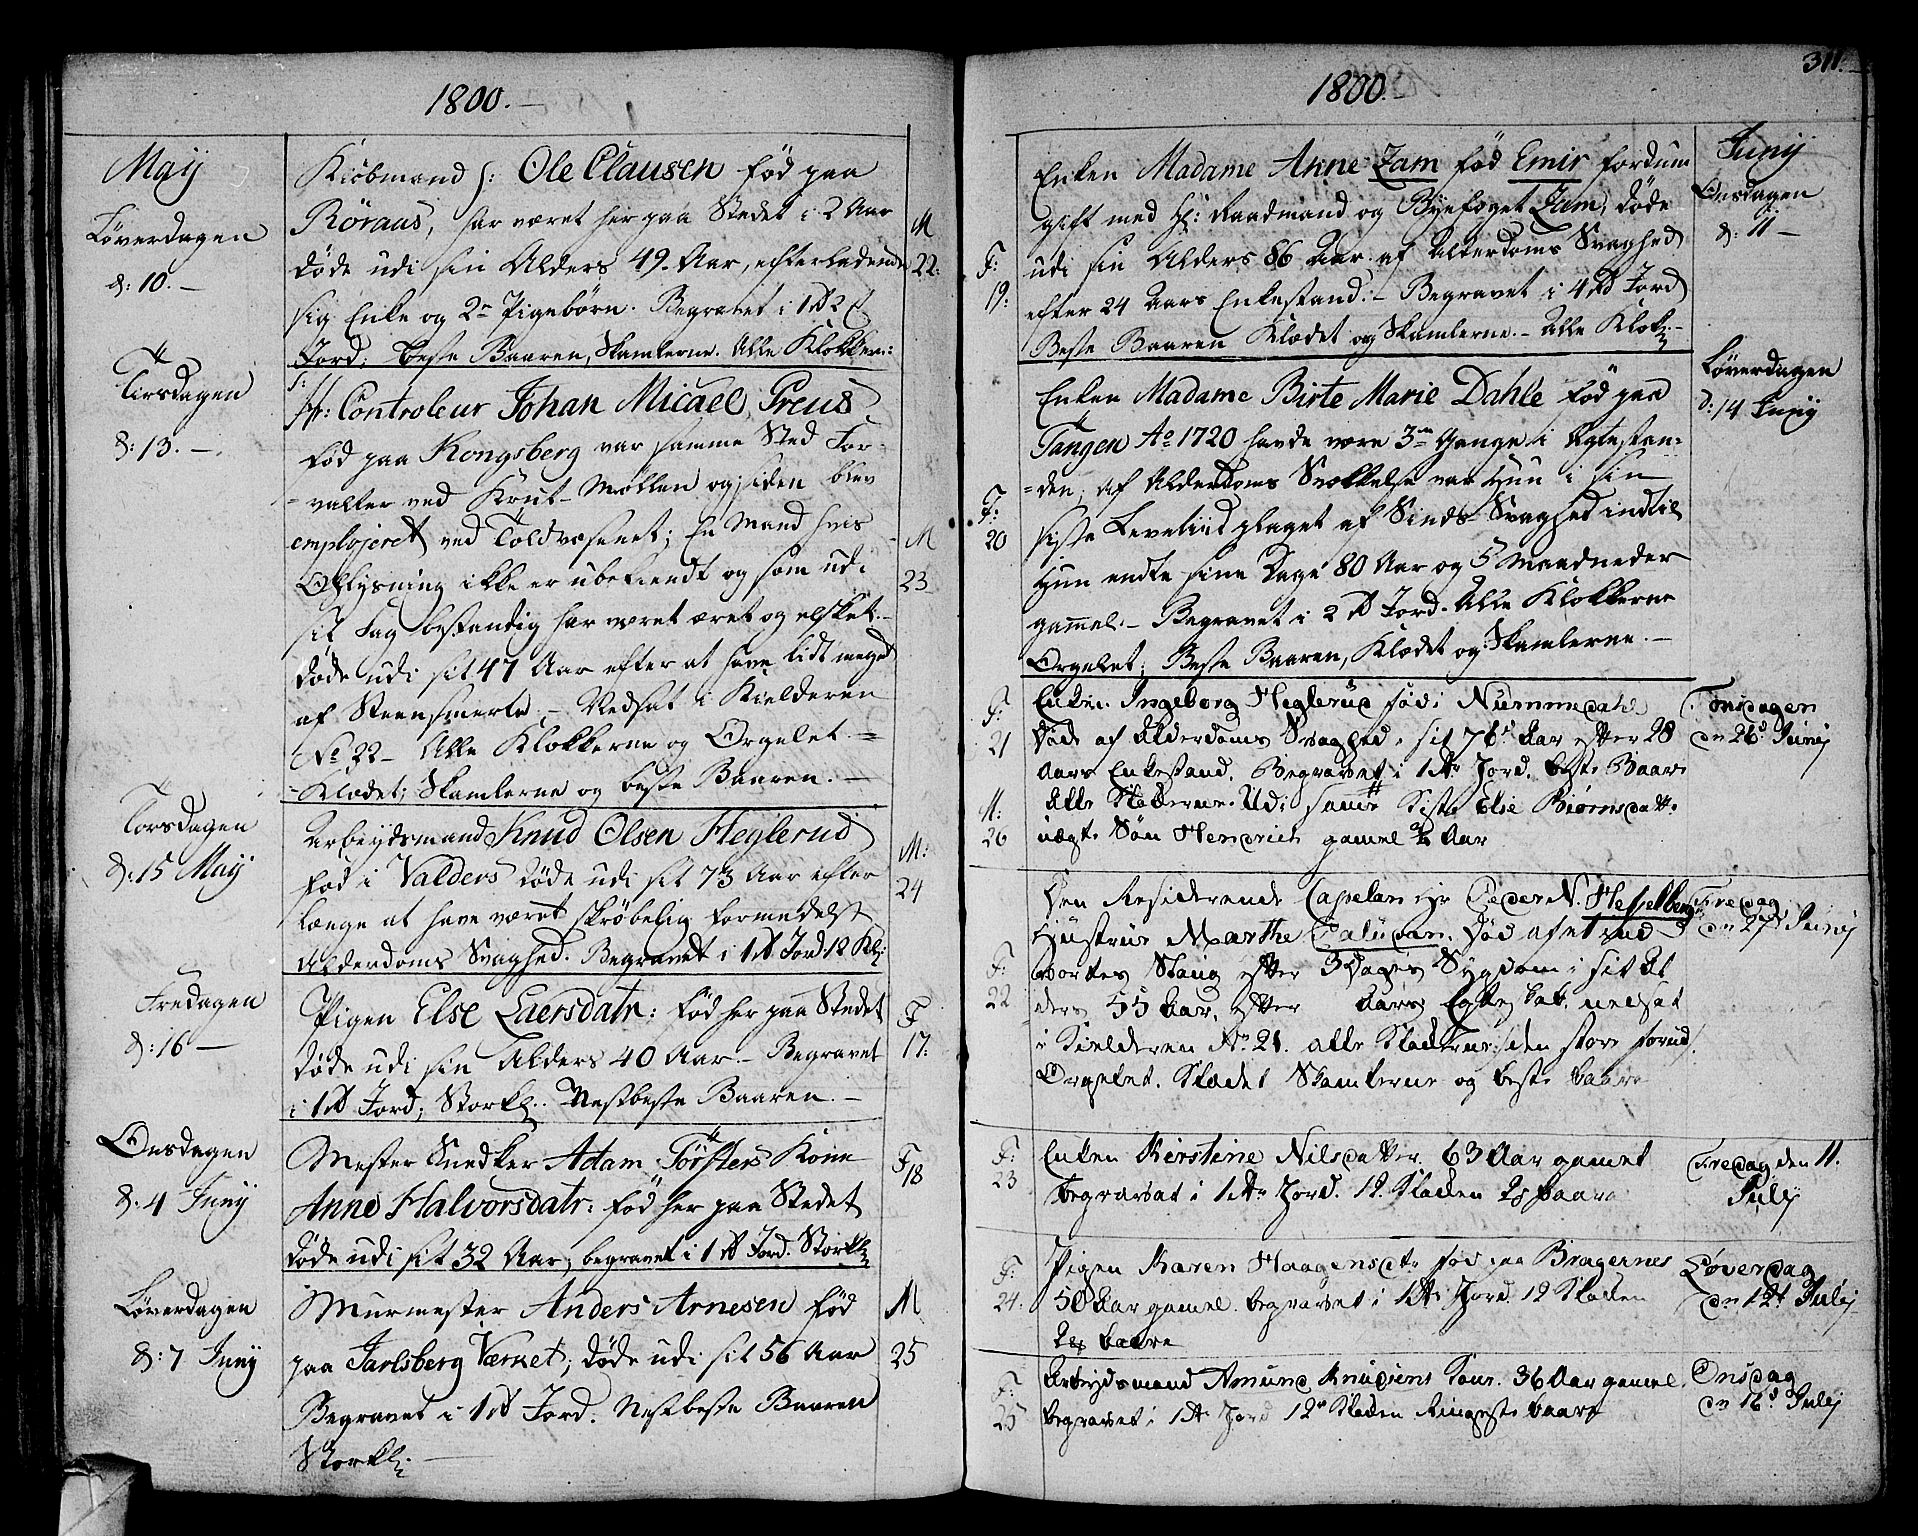 1800.
May
Løverdagen
d: 10. -
Kiøbmand S: Ole Clausen fød paa
Röraas, har været her paa Stedet i 2 Aar
døde udi sin Alders 49. Aar, efterladende
sig Enke og 2de Pigebørn. Begravet i 1ste
Jord; beste Baaren, Skamlerne. Alle Klokker:
M
22:
Tirsdagen
d: 13. -
Sr: Controleur Johan Micael Preus
fød paa Kongsberg var samme Sted For-
=valter ved Krut-Møllen og siden blev
emplojeret ved Toldvæsenet; En Mand hvis
Oplysning ikke er ubekiendt og som udi
sit Fag bestandig har været æret og elsket.-
døde udi sit 47 Aar efter at have lidt meget
af Steensmerte. - Nedsat i Kielderen
No 22 - Alle Klokkerne og Orgelet. =
=Klædet; Skamlerne og beste Baaren. -
M
23
Torsdagen
d: 15 May
Arbeydsmand Knud Olsen Heglerud
fød i Valders døde udi sit 73 Aar efter
længe at have været skrøbelig formedelst
Alderdoms Svaghed. Begravet i 1st Jord 12 Kl:
M:
24
Fredagen
d: 16 -
Pigen Else Laersdatr: fød her paa Stedet
døde udi sin Alders 40 Aar. - Begravet
i 1st Jord; Storkl:. Nestbeste Baaren. -
F
17:
Onsdagen
d: 4 Junij
Mester Snedker Adam Törsters Kone
Anne Halvorsdatr: fød her paa Stedet
døde udi sit 32 Aar, begravet i 1st Jord. Storkl:
F
18
Løverdagen
d: 7 Junij
Murmester Anders Arnesen fød
paa Jarlsberg Værket; døde udi sit 56 Aar
Begravet i 1st Jord. Nestbeste Baaren
Storkl: -
M
25
311.
1800.
Enken Madame Anne Zam fød Emir fordum
gift med Hr: Raadmand og Byefoget Zam; døde
udi sin Alders 86 Aar af Alderdoms Svaghed
efter 24 Aars Enkestand. - Begravet i 4de Jord
Beste Baaren Klædet og Skamlerne. - Alle Klok: -
F:
19:
Junij
Onsdagen
d: 11 -
Enken Madame Birte Marie Dahle fød paa
Tangen Ao 1720 havde være 3de Gange i Egtestan-
=den; af Alderdoms Svækkelse var Hun i sin
siste Levetiid plaget af Sinds-Svaghed indtil
Hun endte sine Dage 80 Aar og 5 Maadneder
gammel. - Begravet i 2st Jord. Alle Klokkerne
Orgelet; Beste Baaren, Klædet og Skamlerne. -
F:
20
Løverdagen
d: 14 Junij
Enken Ingeborg Heglerud fød i Nummedahl
døde af Alderdoms Svaghed i sit 76de Aar efter 28
Aars Enkestand. Begravet i 1ste Jord. beste Baare
alle Klokkerne. Udi samme Kiste Else Biørnsdatter
uægte Søn Henrich gamel Aar
F:
21
M:
26
Torsdagen
den 26de Junij
Den Residerende Capelan Hr Peder N. Hesselberg
Hustrue Marthe Paludan. død
efter 3 Dages Sygdom i sit Al
ders 55 Aar, efter Aars Egteskab. nedsat
i Kielderen No 21. alle Klokkerne (den store forud).
Orgelet. Klædet Skamlerne og beste baare
F:
22
Fredag
den 27de Junij
Enken Kirstine Nilsdatter 63 Aar gamel
begravet i 1ste Jord. 12. Klokken baare
F:
23
Fredag den 11.
Julij
Pigen Karen Haagensdtr fød paa Bragernes
50 Aar gamel. begravet i 1ste Jord 12 Klokken
baare
F:
24.
Løverdag
den 12te Julij
Arbeydsmand Amund Knudsens Kone. 36 Aar gamel.
begravet i 1ste Jord 12te Klokken Ringeste baare
F:
25
Onsdag
den 16de Julij